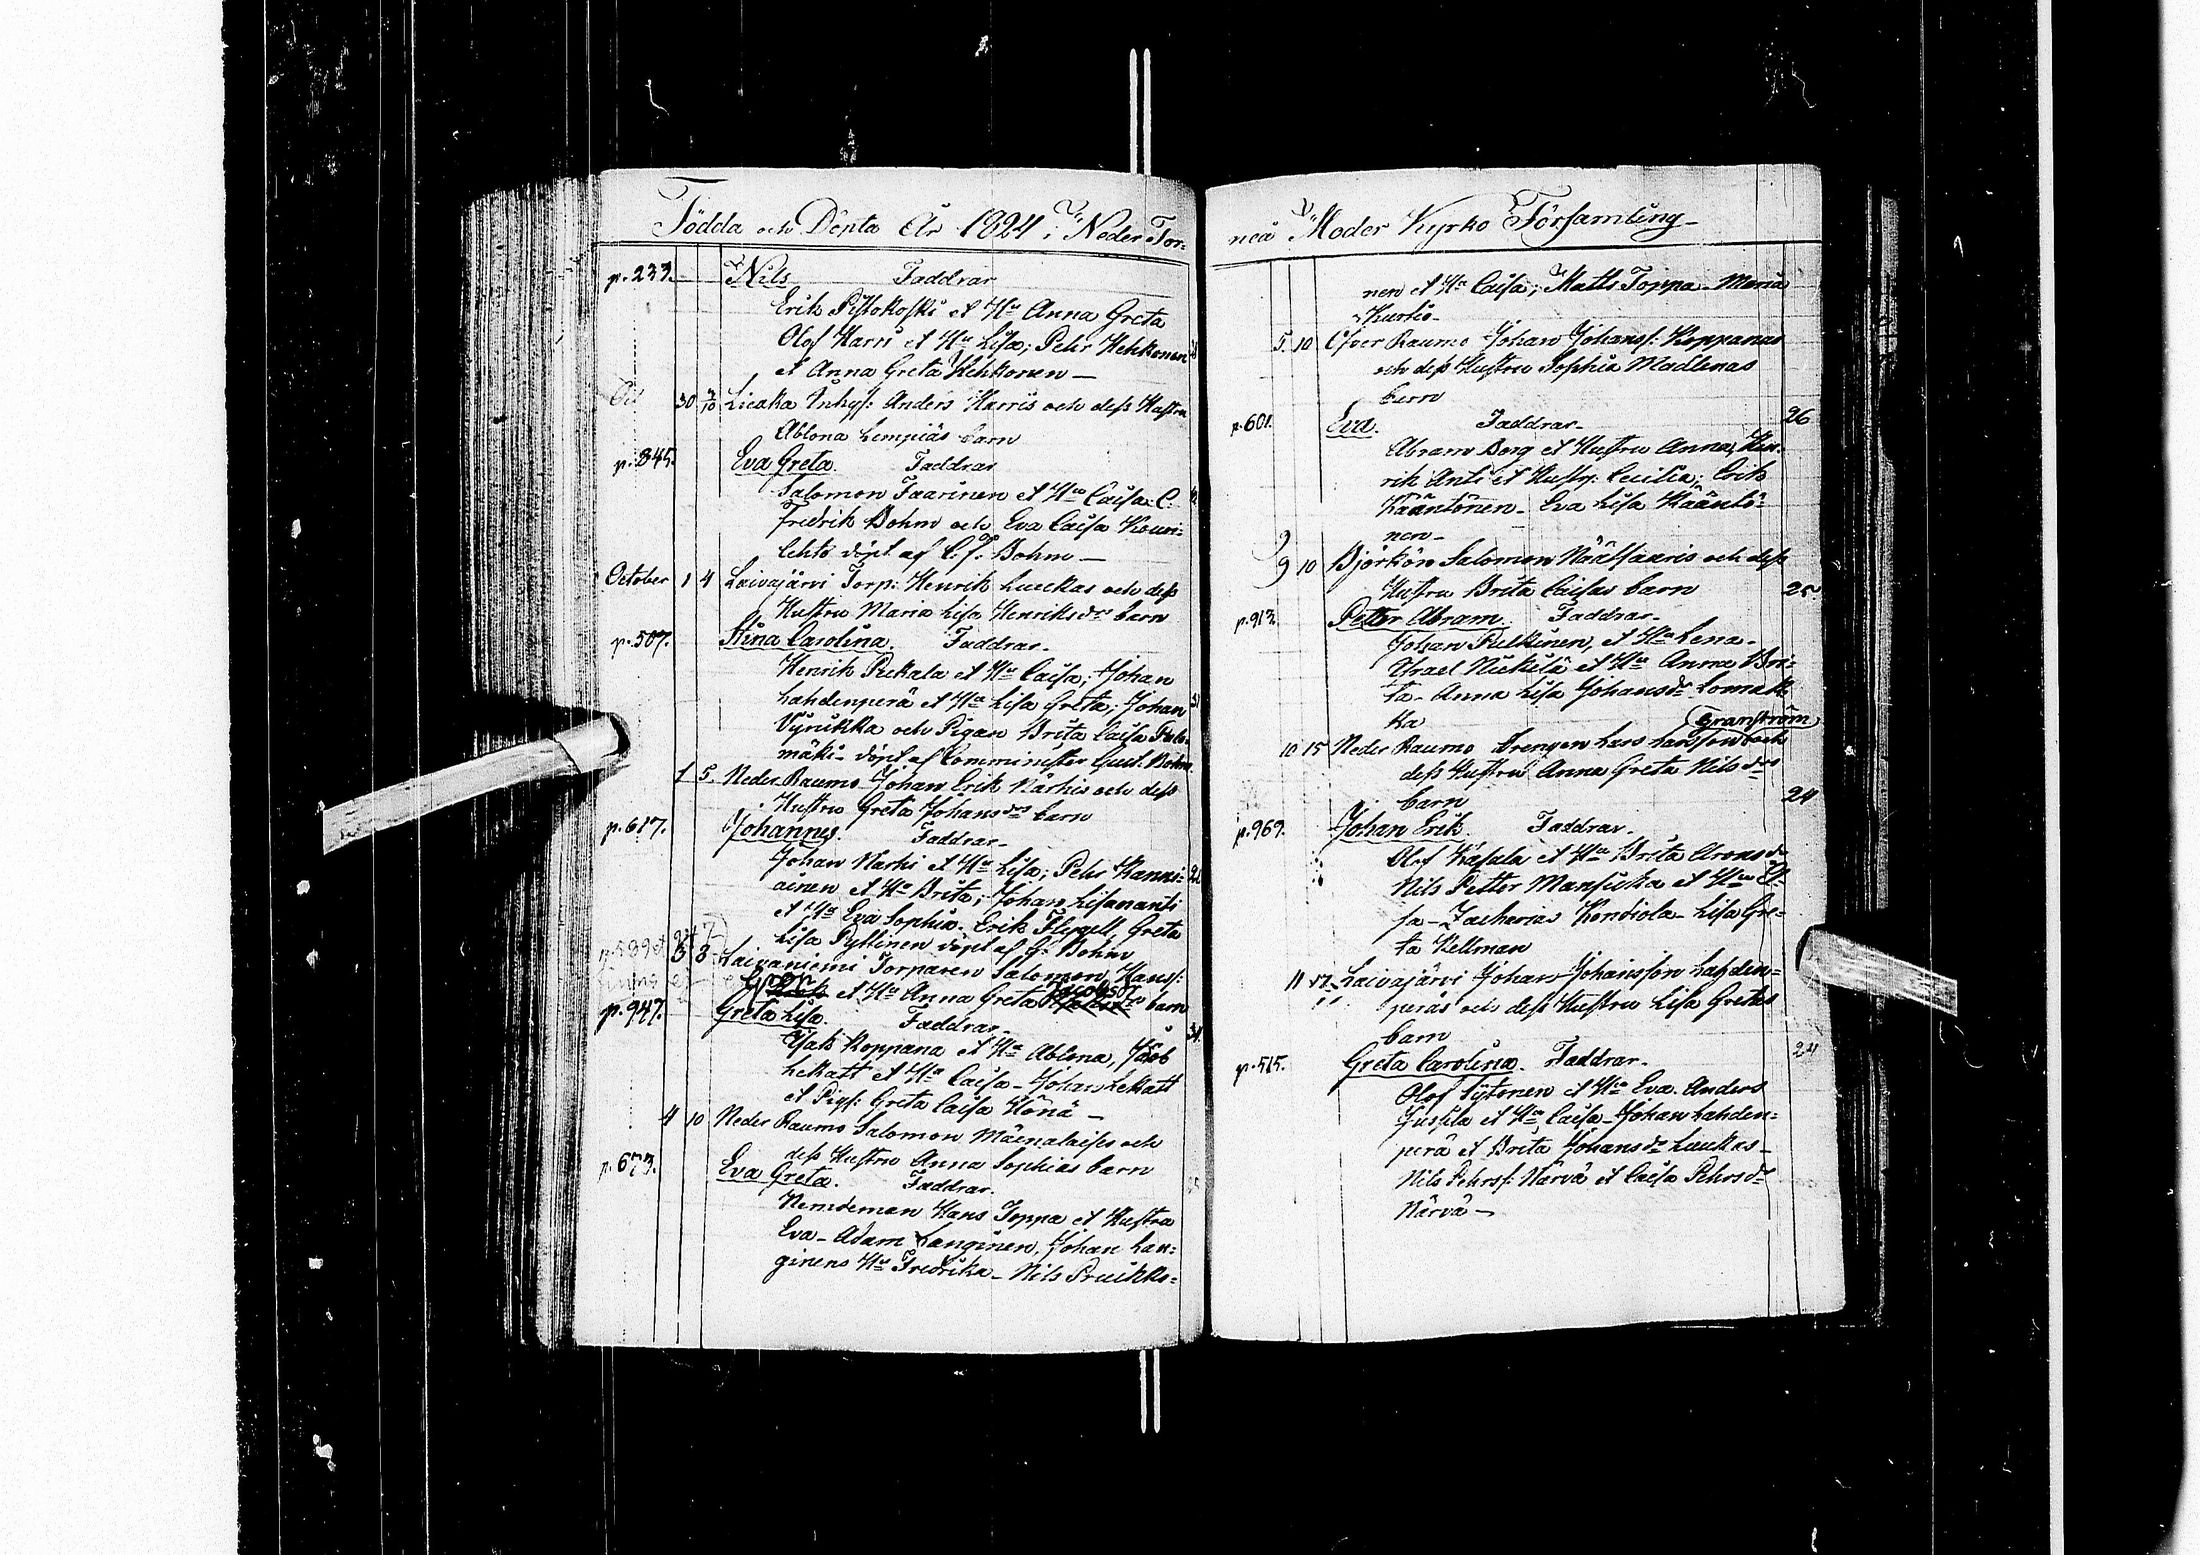 Födda och Döpta År 1824 i Neder Tor-
p. 233. Nils Faddrar
Erik Pistokoski et Hu Anna Greta
Olof Harri et Hu Lisa; Pehr Hehkonen
et Anna Greta Hehkonen —
30 3/10 Liedka Inhys: Anders Harris och dess Hustru
Ablona Lempiäs barn
p. 345. Eva Greta. Faddrar
Salomon Faarinen et Hu Caisa C.
Fredrik Bohm och Eva Caisa Kouri-
lehto döpt af C. J. Bohm —
October 1 4 Laivajärvi Torp: Henrik Luuckas och dess
Hustru Maria Lisa Henriksdrs barn
p. 507. Stina Carolina. Faddrar.
Henrik Pickala et Hu Caisa; Johan
Lahdenperä et Hu Lisa Greta; Johan
Vyrickka och Pigan Brita Caisa
mäki — döpt af Comminister Gust. Bohm.
1 5. Neder Raumo Johan Erik Närhis och dess
Hustru Greta Johansdrs barn
p. 617. Johannes. Faddrar.
Johan Närhi et Hu Lisa; Pehr Kanni-
ainen et Hu Brita; Johan Lisananti
et Hu Eva Sophia. Erik Flygell, Greta
Lisa Pyttinen döpt af G. Bohm
3 8 Laivaniemi Torparen Salomon Hanss:
et Hu Anna Greta Jacobsdr barn
p. 947. Greta Lisa. Faddrar.
Isak Koppana et Hu Ablona, Jacob
Lekatt et Hu Caisa — Johan Lekatt
et Pigs: Greta Caisa Hönä —
4 10 Neder Raumo Salomon Mäenalaises och
dess Hustru Anna Sophias barn
p. 673. Eva Greta. Faddrar.
Nemdeman Hans Toppa et Hustru
Eva — Adam Langinen, Johan Lan-
ginens Hu Fredrika — Nils Pruikko-
neå Moder Kyrko Församling
nen et Hu Caisa; Matts Toppa — Maria
Kurtio.
5. 10 Öfver Raumo Johan Johanss: Koppanas
och dess Hustru Sophia Madlenas
barn
p. 601. Eva. Faddrar. 26
Abram Borg et Hustru Anna, Hen-
rik Anti et Hustr: Cecilia; Erik
Kääntönen — Eva Lisa Kääntö-
nen —
9 10 Björkön Salomon Näätsaaris och dess
Hustru Brita Caisas barn 25
p. 913. Petter Abram. Faddrar.
Johan Pulkinen, et Hu Lena —
Israel Nickilä et Hu Anna Bri-
ta — Anna Lisa Johansdr Lomak-
ka (Granström)
10 15 Neder Raumo Drengen Lars Larsson och
dess Hustru Anna Greta Nilsdrs
barn 24
p. 969. Johan Erik. Faddrar.
Olof Kasala et Hu Brita Aronsdr
Nils Petter Mansicka et Hu El-
sa — Zacharias Kondiola — Lisa Gre-
ta Kellman
11 17 Laivajärvi Johan Johansson Lahden-
peräs och dess Hustru Lisa Gretas
barn 24
p. 515. Greta Carolina. Faddrar.
Olof Sytonen et Hu Eva. Anders
Jussila et Hu Caisa — Johan Lahden-
perä et Brita Johansdr Luukas —
Nils Pehrss: Närvä et Caisa Pehrsdr
Närvä —